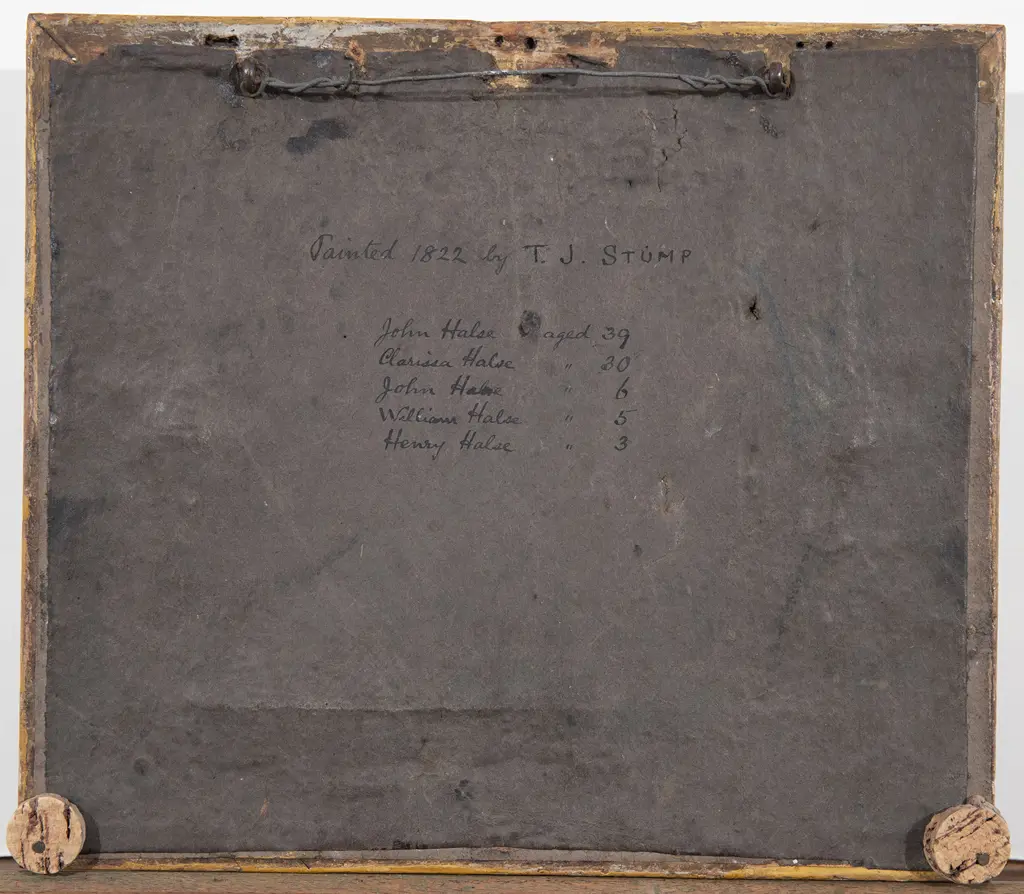 Painted 1822 by T. J. STUMP
John Halse aged 39
Clarissa Halse " 30
John Halse " 6
William Halse " 5
Henry Halse " 3